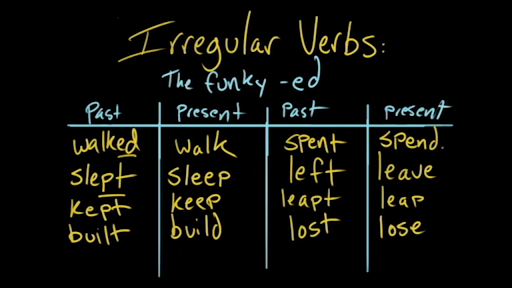 Irregular Verbs:
The funky -ed
Past Present Past present
walked walk spent spend.
slept sleep left leave
kept keep leapt leap
built build lost lose